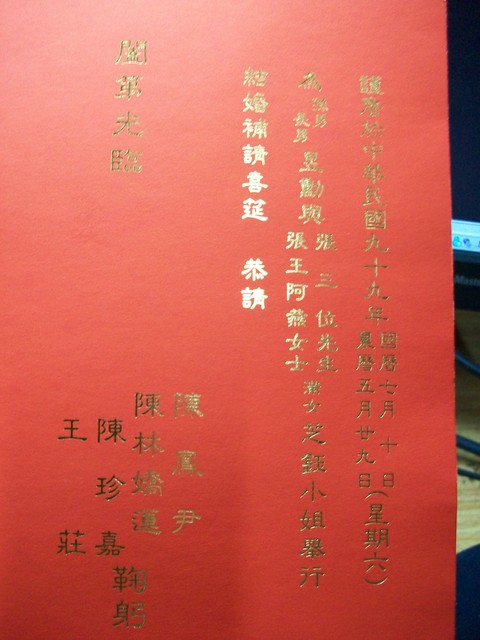 謹詹於中華民國九十九年 國曆七月十日 農曆五月廿九日 (星期六)
為 孫男 長男 昱勳與 張三位先生 張王阿燕女士 淑女芝鈺小姐舉行
結婚補請喜筵 恭請
闔第光臨
陳鳳尹
陳林嬌蓮
陳珍嘉
王莊
鞠躬